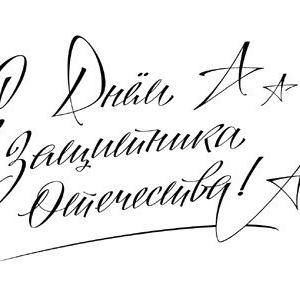 С Днём
Защитника
Отечества!